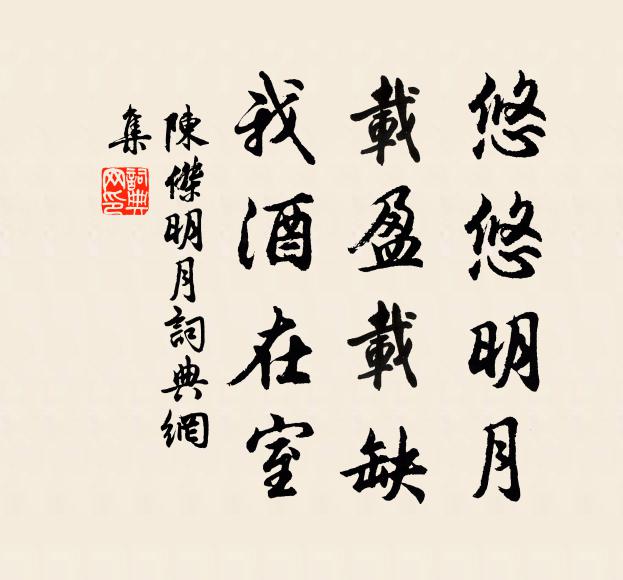 悠悠明月
載盈載缺
我酒在室
陳傑明月詞典網
集
詞典
网印